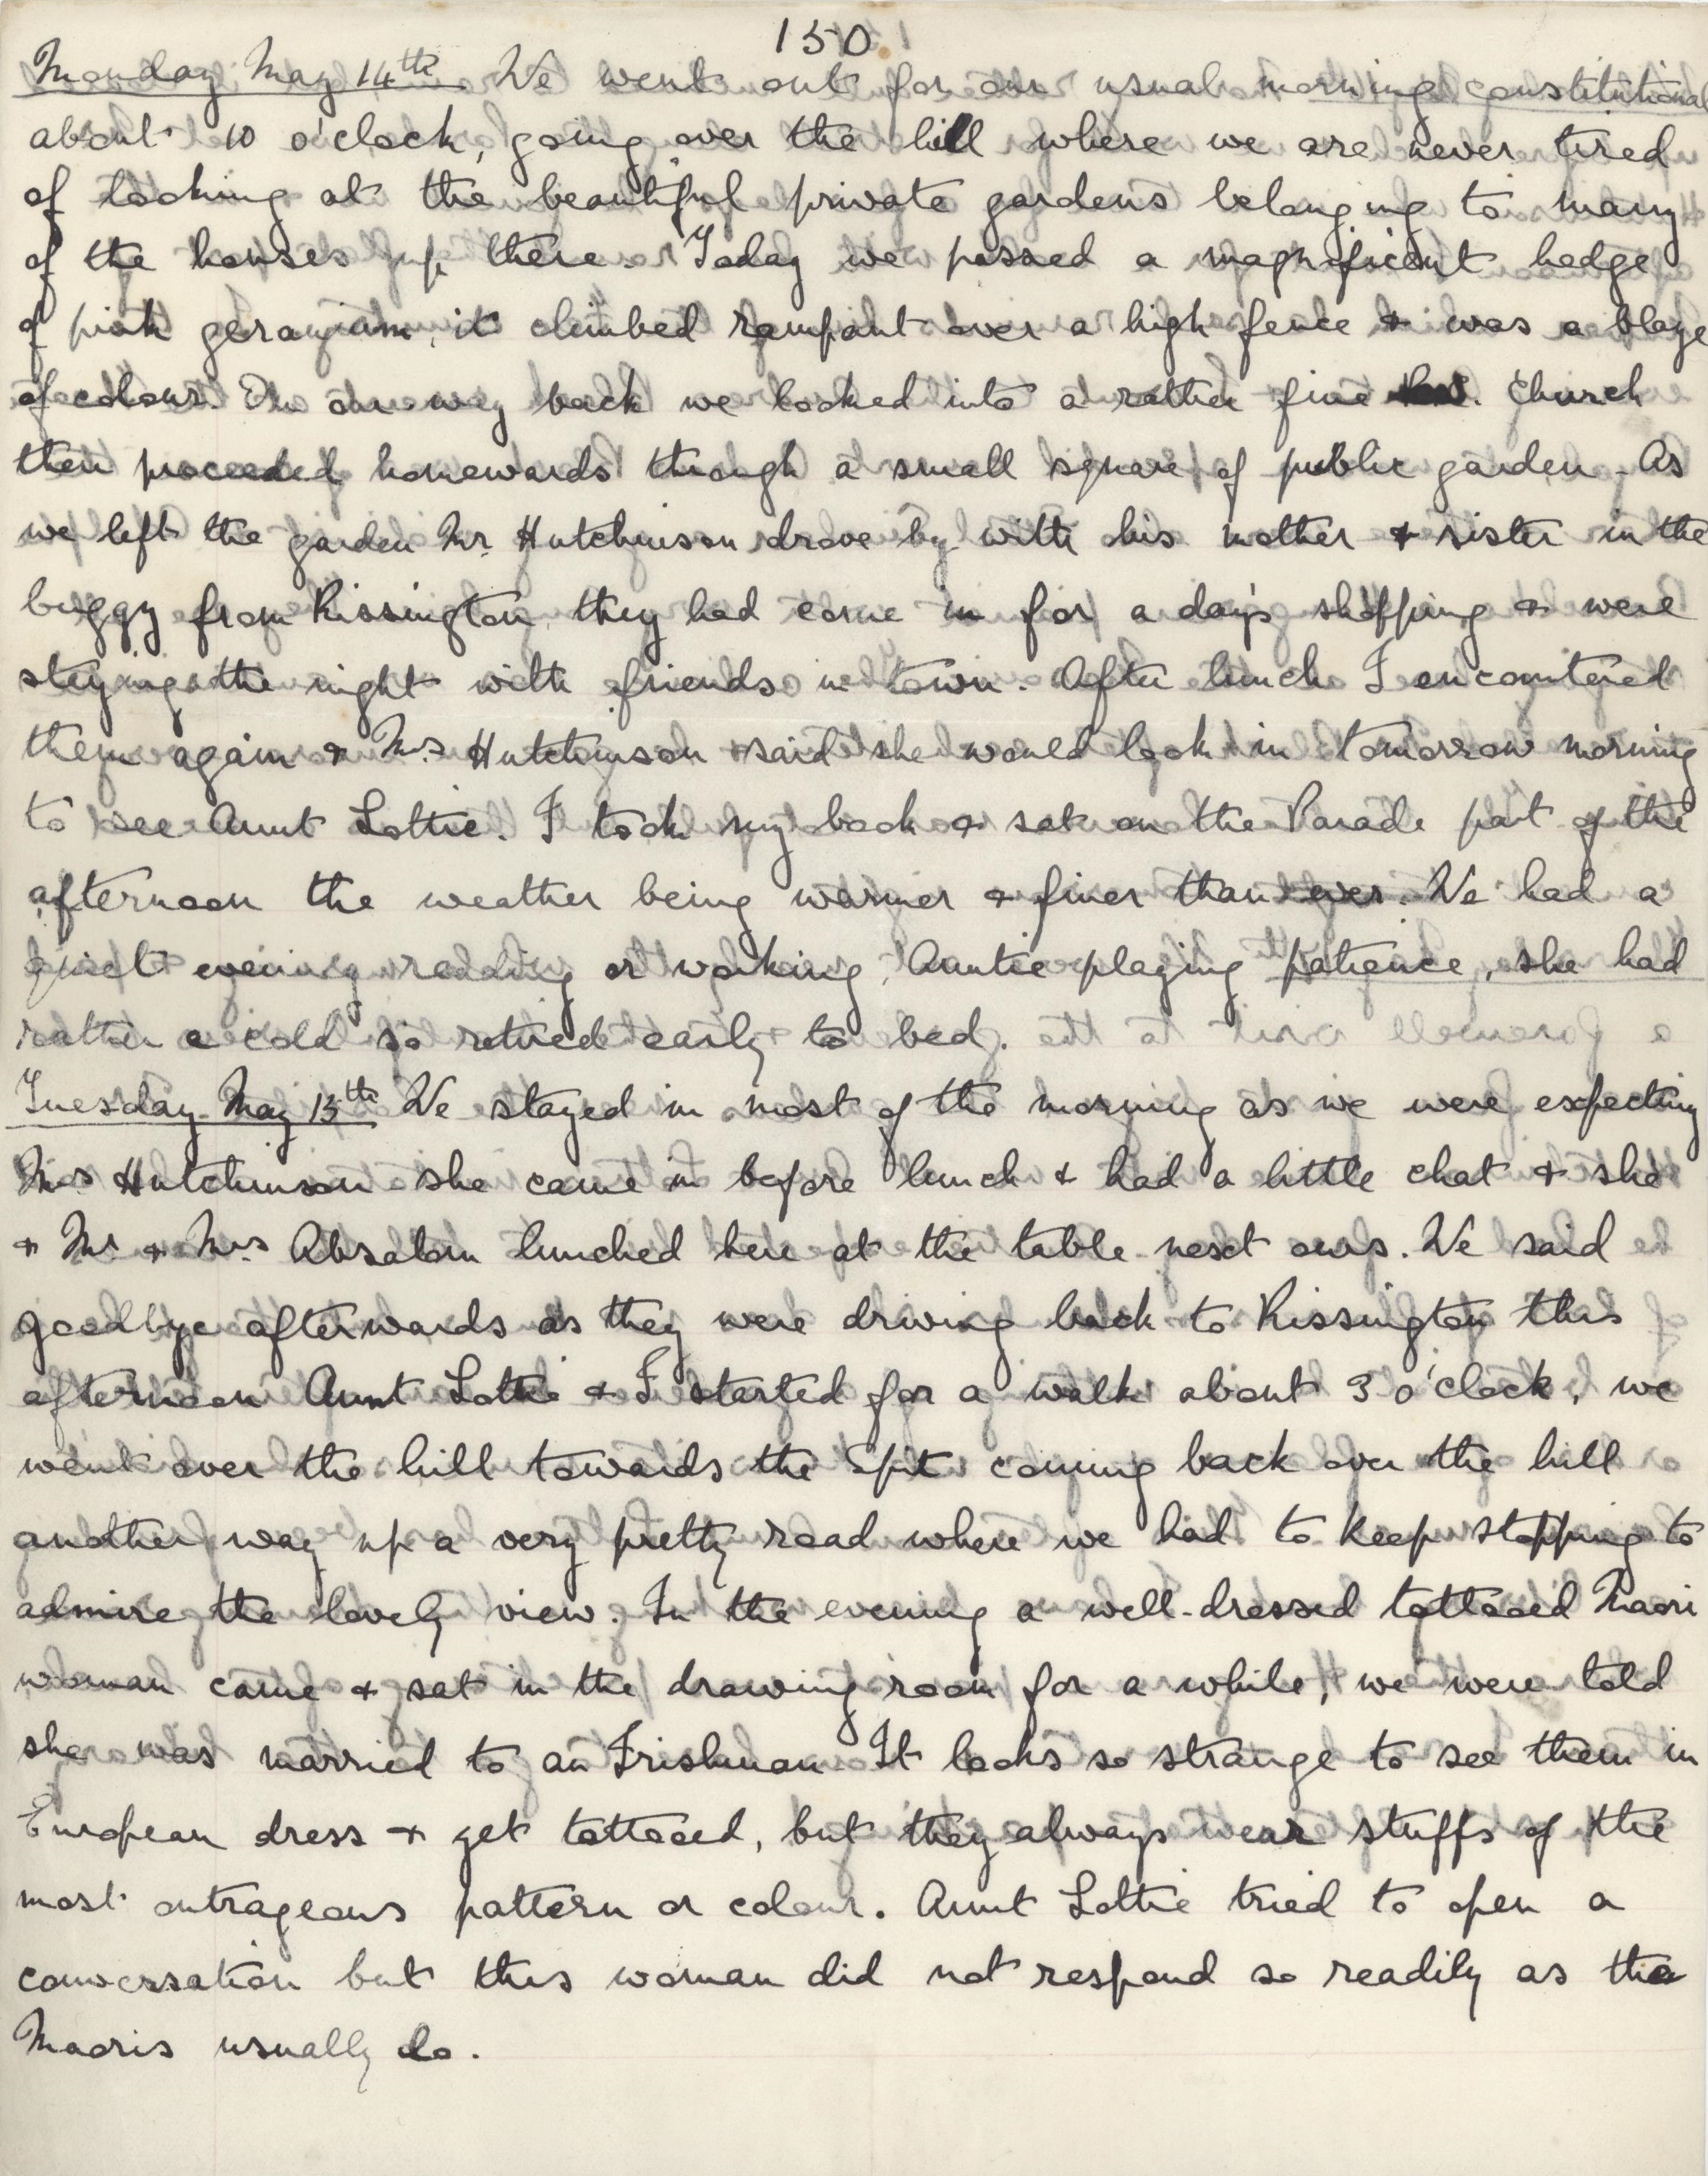 150
Monday May 14th We went out for our usual morning constitutional
about 10 o'clock, going over the hill where we are never tired
of looking at the beautiful private gardens belonging to many
of the houses up there. Today we passed a magnificent hedge
of pink geranium, it climbed rampant over a high fence & was a blaze
of colour. On our way back we looked into a rather fine church
then proceeded homewards through a small square of public garden. As
we left the garden Mr. Hutchinson drove by with his mother & sister in the
buggy from Rissington, they had come in for a day's shopping & were
staying the night with friends in town. After lunch I encountered
them again & Mrs Hutchinson said she would look in tomorrow morning
to see Aunt Lottie. I took my book & sat on the Parade part of the
afternoon the weather being warmer & finer than ever. We had a
quiet evening reading or working, Auntie playing patience, she had
rather a cold so retired early to bed.
Tuesday May 15th We stayed in most of the morning as we were expecting
Mrs Hutchinson she came in before lunch & had a little chat & she
& Mr & Mrs Absalom lunched here at the table next ours. We said
goodbye afterwards as they were driving back to Rissington this
afternoon Aunt Lottie & I started for a walk about 3 o'clock, we
went over the hill towards the Spit coming back over the hill
another way up a very pretty road where we had to keep stopping to
admire the lovely view. In the evening a well-dressed tattooed Maori
woman came & sat in the drawing room for a while, we were told
she was married to an Irishman It looks so strange to see them in
European dress & yet tattooed, but they always wear stuffs of the
most outrageous pattern or colour. Aunt Lottie tried to open a
conversation but this woman did not respond so readily as the
Maoris usually do.